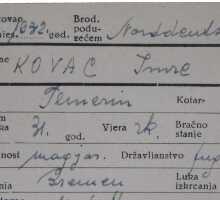 Brod.
1932. god. podu-
zećem Norddeuts
KOVAČ Imre
Temerin Kotar-
31. god. Vjera rk. Bračno
stanje
nost magjar. Državljanstvo jug
Luka
Bremen iskrcanja